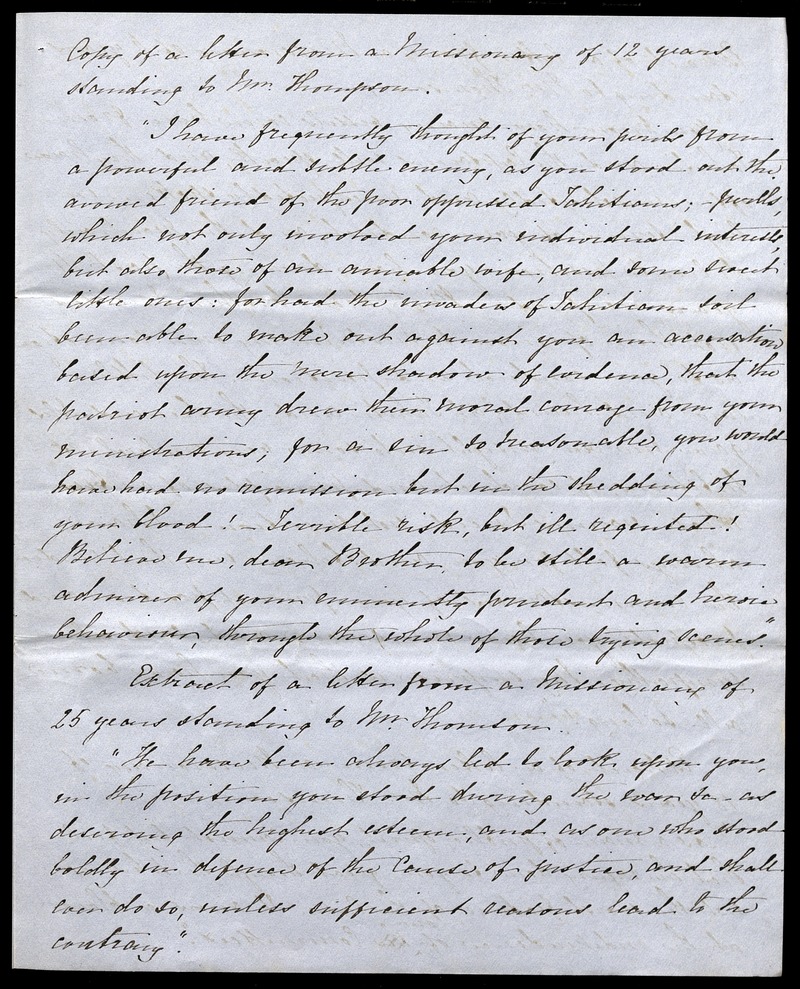 Copy of a letter from a Missionary of 12 years
standing to Mr. Thompson.
"I have frequently thought of your perils from
a powerful and subtle enemy, as you stood out the
avowed friend of the poor oppressed Tahitians; - perils,
which not only involved your individual interests,
but also those of an amiable wife, and some sweet
little ones: for had the invaders of Tahitian soil
been able to make out against you an accusation
based upon the mere shadow of evidence, that the
patriot army drew their moral courage from your
ministrations, for a sin so treasonable, you would
have had no remission but in the shedding of
your blood! - Terrible risk, but ill requited!
Believe me, dear Brother, to be still a warm
admirer of your eminently prudent and heroic
behaviour, through the whole of those trying scenes."
Extract of a letter from a Missionary of
25 years standing to Mr. Thomson.
"We have been always led to look upon you,
in the position you stood during the war &c - as
deserving the highest esteem, and as one who stood
boldly in defence of the cause of justice, and shall
ever do so, unless sufficient reasons lead to the
contrary".